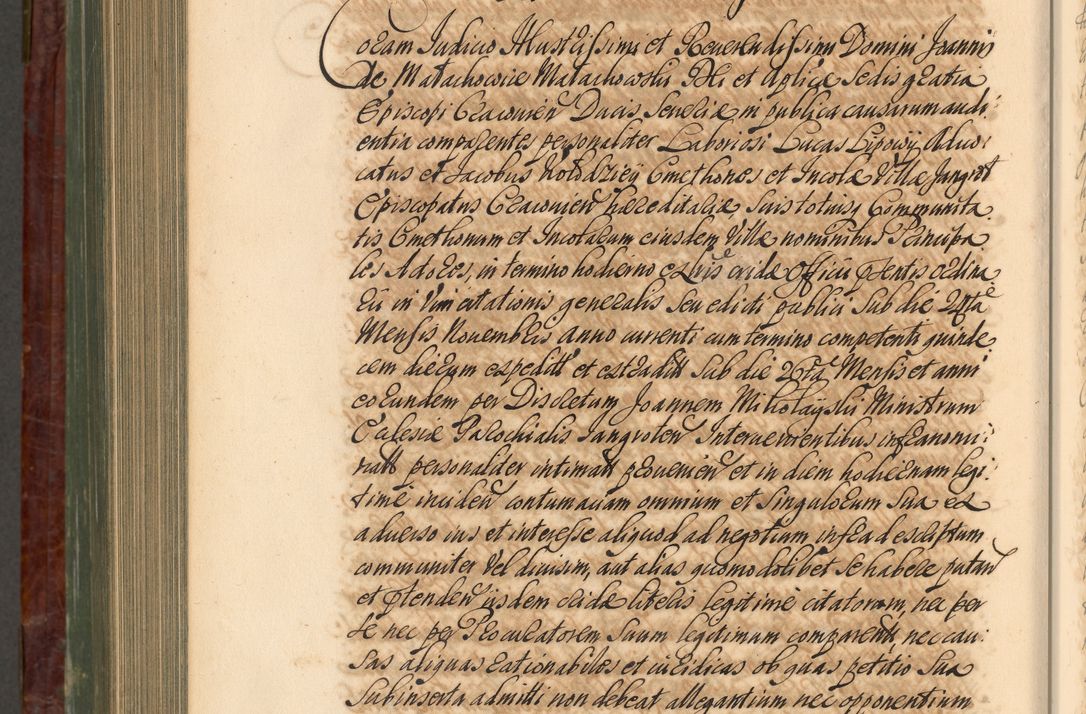 Coram Iudicio Illustrissimi et Reverendissimi Domini Joannis
de Małachowice Małachowski Dei et Aplicæ Sedis gratia
Episcopi Cracouien Ducis Seueriæ in publica causarum audi-
entia comparentes personaliter Laboriosi Lucas Lipowy Aduo-
catus et Jacobus Kołodzieÿ Cmethones et Incolæ Villæ Jangrot
Episcopatus Cracouien hæreditariæ, suis totiusq Communita-
tis Cmethonum et Incolarum eiusdem Villæ nominibus Principa-
les Actores, in termino hodierno ex Lris cridæ Officii pñtentis ordina-
rii in vim citationis generalis seu edicti publici sub die 24ta
Mensis Nouembris anno currenti cum termino competenti quinde-
cem dierum expeditt et extraditt sub die 26ta Mensis et anni
eorundem per Discretum Joannem Mikołayski Ministrum
Ecclesiæ Parochialis Jangroten Interuenientibus infranomi-
natt personaliter intimatt prouenien et in diem hodiernam legi-
time inciden contumaciam omnium et singulorum sua ex
aduerso ius et interesse aliquod ad negotium infra descriptum
communiter vel diuisim, aut alias quomodolibet se habere putan
et pñtenden iisdem cridæ literis legitime citatorum, nec per
se nec per Procuratorem suum legitimum comparenti nec cau-
sas aliquas rationabiles et iuridicas ob quas petitio sua
subinserta admitti non debeat allegantium nec opponentium